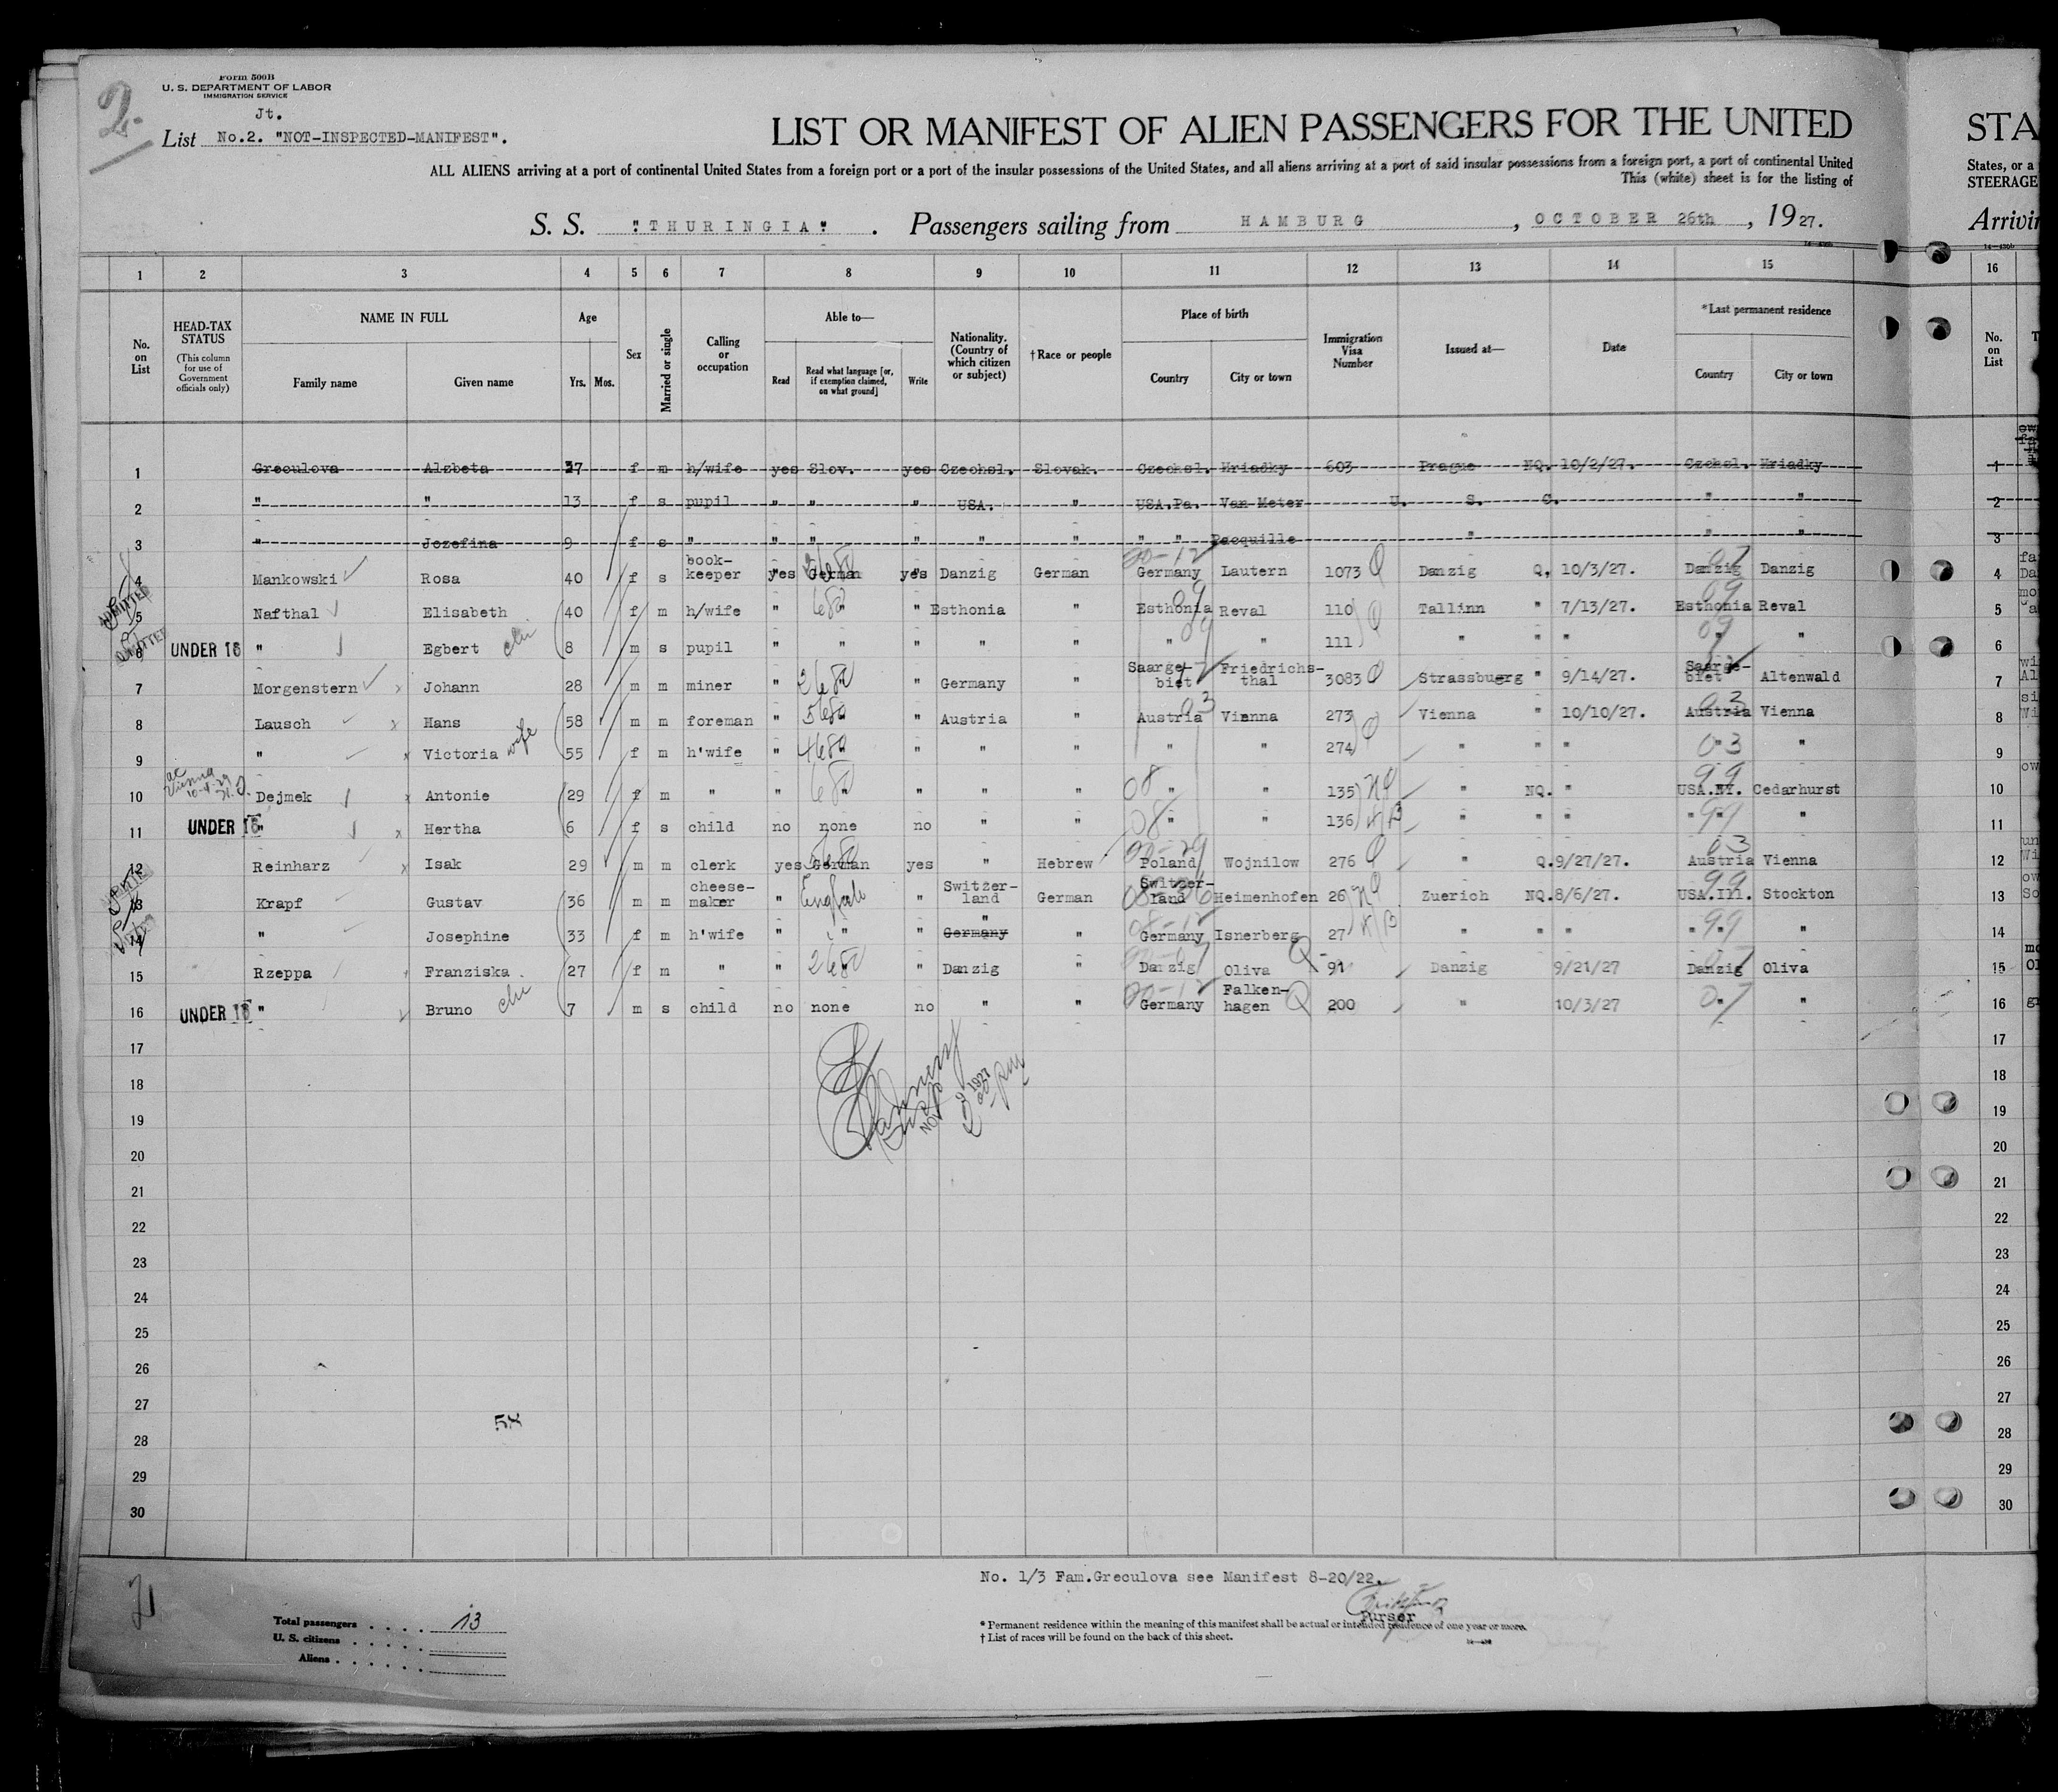 2.
Form 500B
U. S. DEPARTMENT OF LABOR
IMMIGRATION SERVICE
Jt.
List No.2. "NOT-INSPECTED-MANIFEST".
LIST OR MANIFEST OF ALIEN PASSENGERS FOR THE UNITED
STA
ALL ALIENS arriving at a port of continental United States from a foreign port or a port of the insular possessions of the United States, and all aliens arriving at a port of said insular possessions from a foreign port, a port of continental United
States, or a
This (white) sheet is for the listing of
STEERAGE
S. S. "THURINGIA". Passengers sailing from HAMBURG, OCTOBER 26th, 1927.
Arrivin
1 2 3 4 5 6 7 8 9 10 11 12 13 14 15 16
No. on List
HEAD-TAX STATUS
(This column for use of Government officials only)
NAME IN FULL
Family name Given name
Age
Yrs. Mos.
Sex
Married or single
Calling or occupation
Able to—
Read
Read what language [or, if exemption claimed, on what ground]
Write
Nationality. (Country of which citizen or subject)
†Race or people
Place of birth
Country City or town
Immigration Visa Number
Issued at—
Date
*Last permanent residence
Country City or town
No. on List
1 Greculova Alzbeta 37 f m h/wife yes Slov. yes Czechsl. Slovak. Czechsl. Hriadky 603 Prague NQ. 10/2/27. Czchsl. Hriadky 1
2 " " 13 f s pupil " " " USA. " USA.Pa. Van Meter U. S. C. " " 2
3 " Jozefina 9 f s " " " " " " " " Pacquille " " " 3
4 Mankowski Rosa 40 f s book-keeper yes German yes Danzig German Germany Lautern 1073 Danzig Q, 10/3/27. Danzig Danzig 4
ADMITTED
5 Nafthal Elisabeth 40 f m h/wife " " " Esthonia " Esthonia Reval 110 Tallinn " 7/13/27. Esthonia Reval 5
6 UNDER 16 " Egbert 8 m s pupil " " " " " " " 111 " " " " " 6
7 Morgenstern Johann 28 m m miner " " Germany " Saargebiet Friedrichs-thal 3083 Strassbuerg " 9/14/27. Saarge-biet Altenwald 7
8 Lausch Hans 58 m m foreman " " Austria " Austria Vienna 273 Vienna " 10/10/27. Austria Vienna 8
9 " Victoria wife 55 f m h'wife " " " " " " 274 " " " 03 " 9
10 Dejmek Antonie 29 f m " " " " " " " " 135 " NQ. " USA.NY. Cedarhurst 10
11 UNDER 16 " Hertha 6 f s child no none no " " " " 136 " " " " " 11
12 Reinharz Isak 29 m m clerk yes German yes " Hebrew Poland Wojnilow 276 " Q. 9/27/27. Austria Vienna 12
13 Krapf Gustav 36 m m cheese-maker " English " Switzer-land German Switzer-land Heimenhofen 26 Zuerich NQ. 8/6/27. USA.Ill. Stockton 13
14 " Josephine 33 f m h'wife " " " " Germany " Germany Isnerberg 27 " " " " " 14
15 Rzeppa Franziska. 27 f m " " " " Danzig " Danzig Oliva 91 Danzig 9/21/27 Danzig Oliva 15
16 UNDER 16 " Bruno 7 m s child no none no " " Germany Falken-hagen 200 " 10/3/27 " " 16
17 17
18 NOV 1927 18
19 19
20 20
21 21
22 22
23 23
24 24
25 25
26 26
27 27
58
28 28
29 29
30 30
No. 1/3 Fam.Greculova see Manifest 8-20/22.
Purser
Total passengers . . . . 13
U. S. citizens . . . . .
Aliens . . . . . .
* Permanent residence within the meaning of this manifest shall be actual or intended residence of one year or more.
† List of races will be found on the back of this sheet.